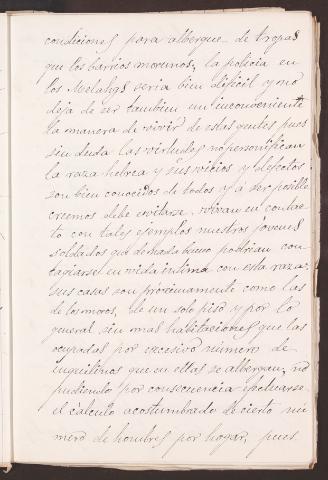 condiciones para albergue de tropas
que los barrios morunos, la policia en
los Melahs seria bien deficil y no
deja de ser tambien un inconveniente
la manera de vivir de estas gentes pues
sin duda las virtudes no personifican
la raza hebrea y sus vicios y defectos
son bien conocidos de todos y á ser posible
creemos debe evitarse vivan en contac
to con tales ejemplos nuestros jovenes
soldados que de nada bueno podrian con
tagiarse en vida intima con esta raza.
sus casas son proximamente como las
de los moros, de un solo piso y por lo
general sin mas habitaciones que las
ocupadas por excesivo número de
inquilinos que en ellas se albergan, no
pudiendo por consecuencia efectuarse
el cálculo acostumbrado de cierto nú
mero de hombres por hogar, pues